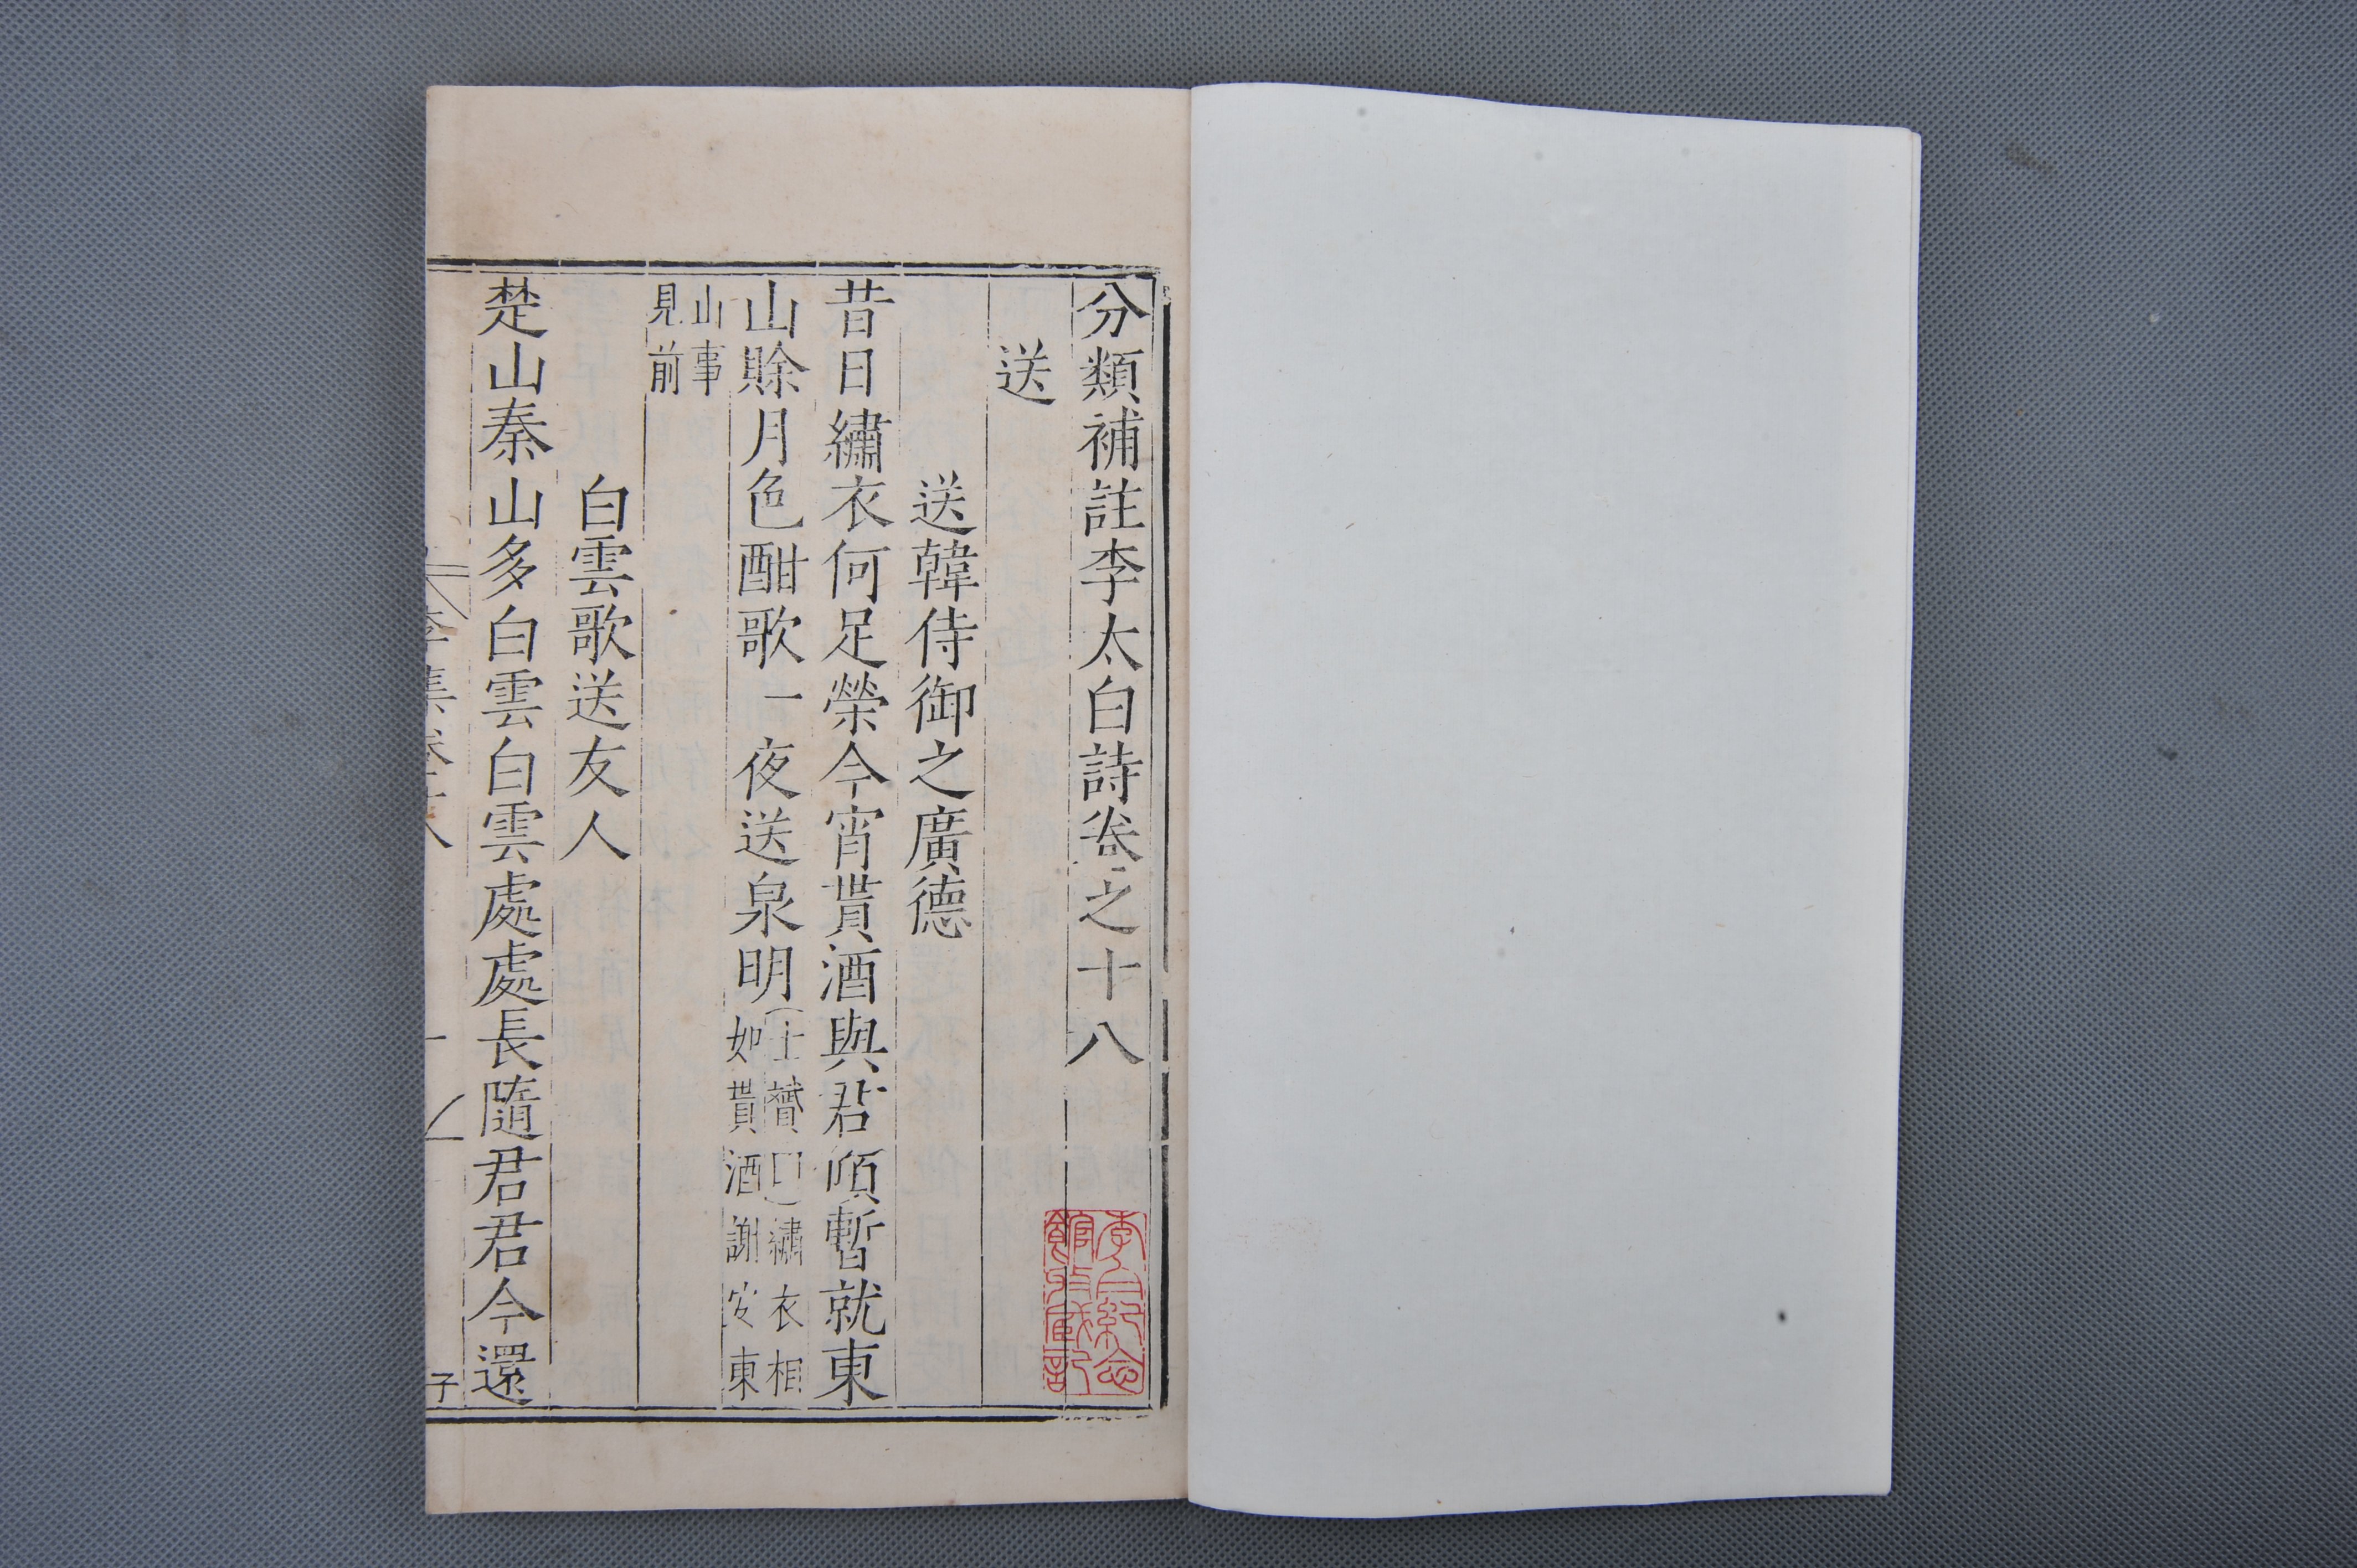 分類補註李太白詩卷之十八
送
送韓侍御之廣德
昔日繡衣何足榮今宵貰酒與君傾暫就東
山賒月色酣歌一夜送泉明
士贇曰繡衣相
如貰酒謝安東
山事
見前
白雲歌送友人
楚山秦山多白雲白雲處處長隨君君今還
李集卷十八
一
子
李白紀念
館收藏記